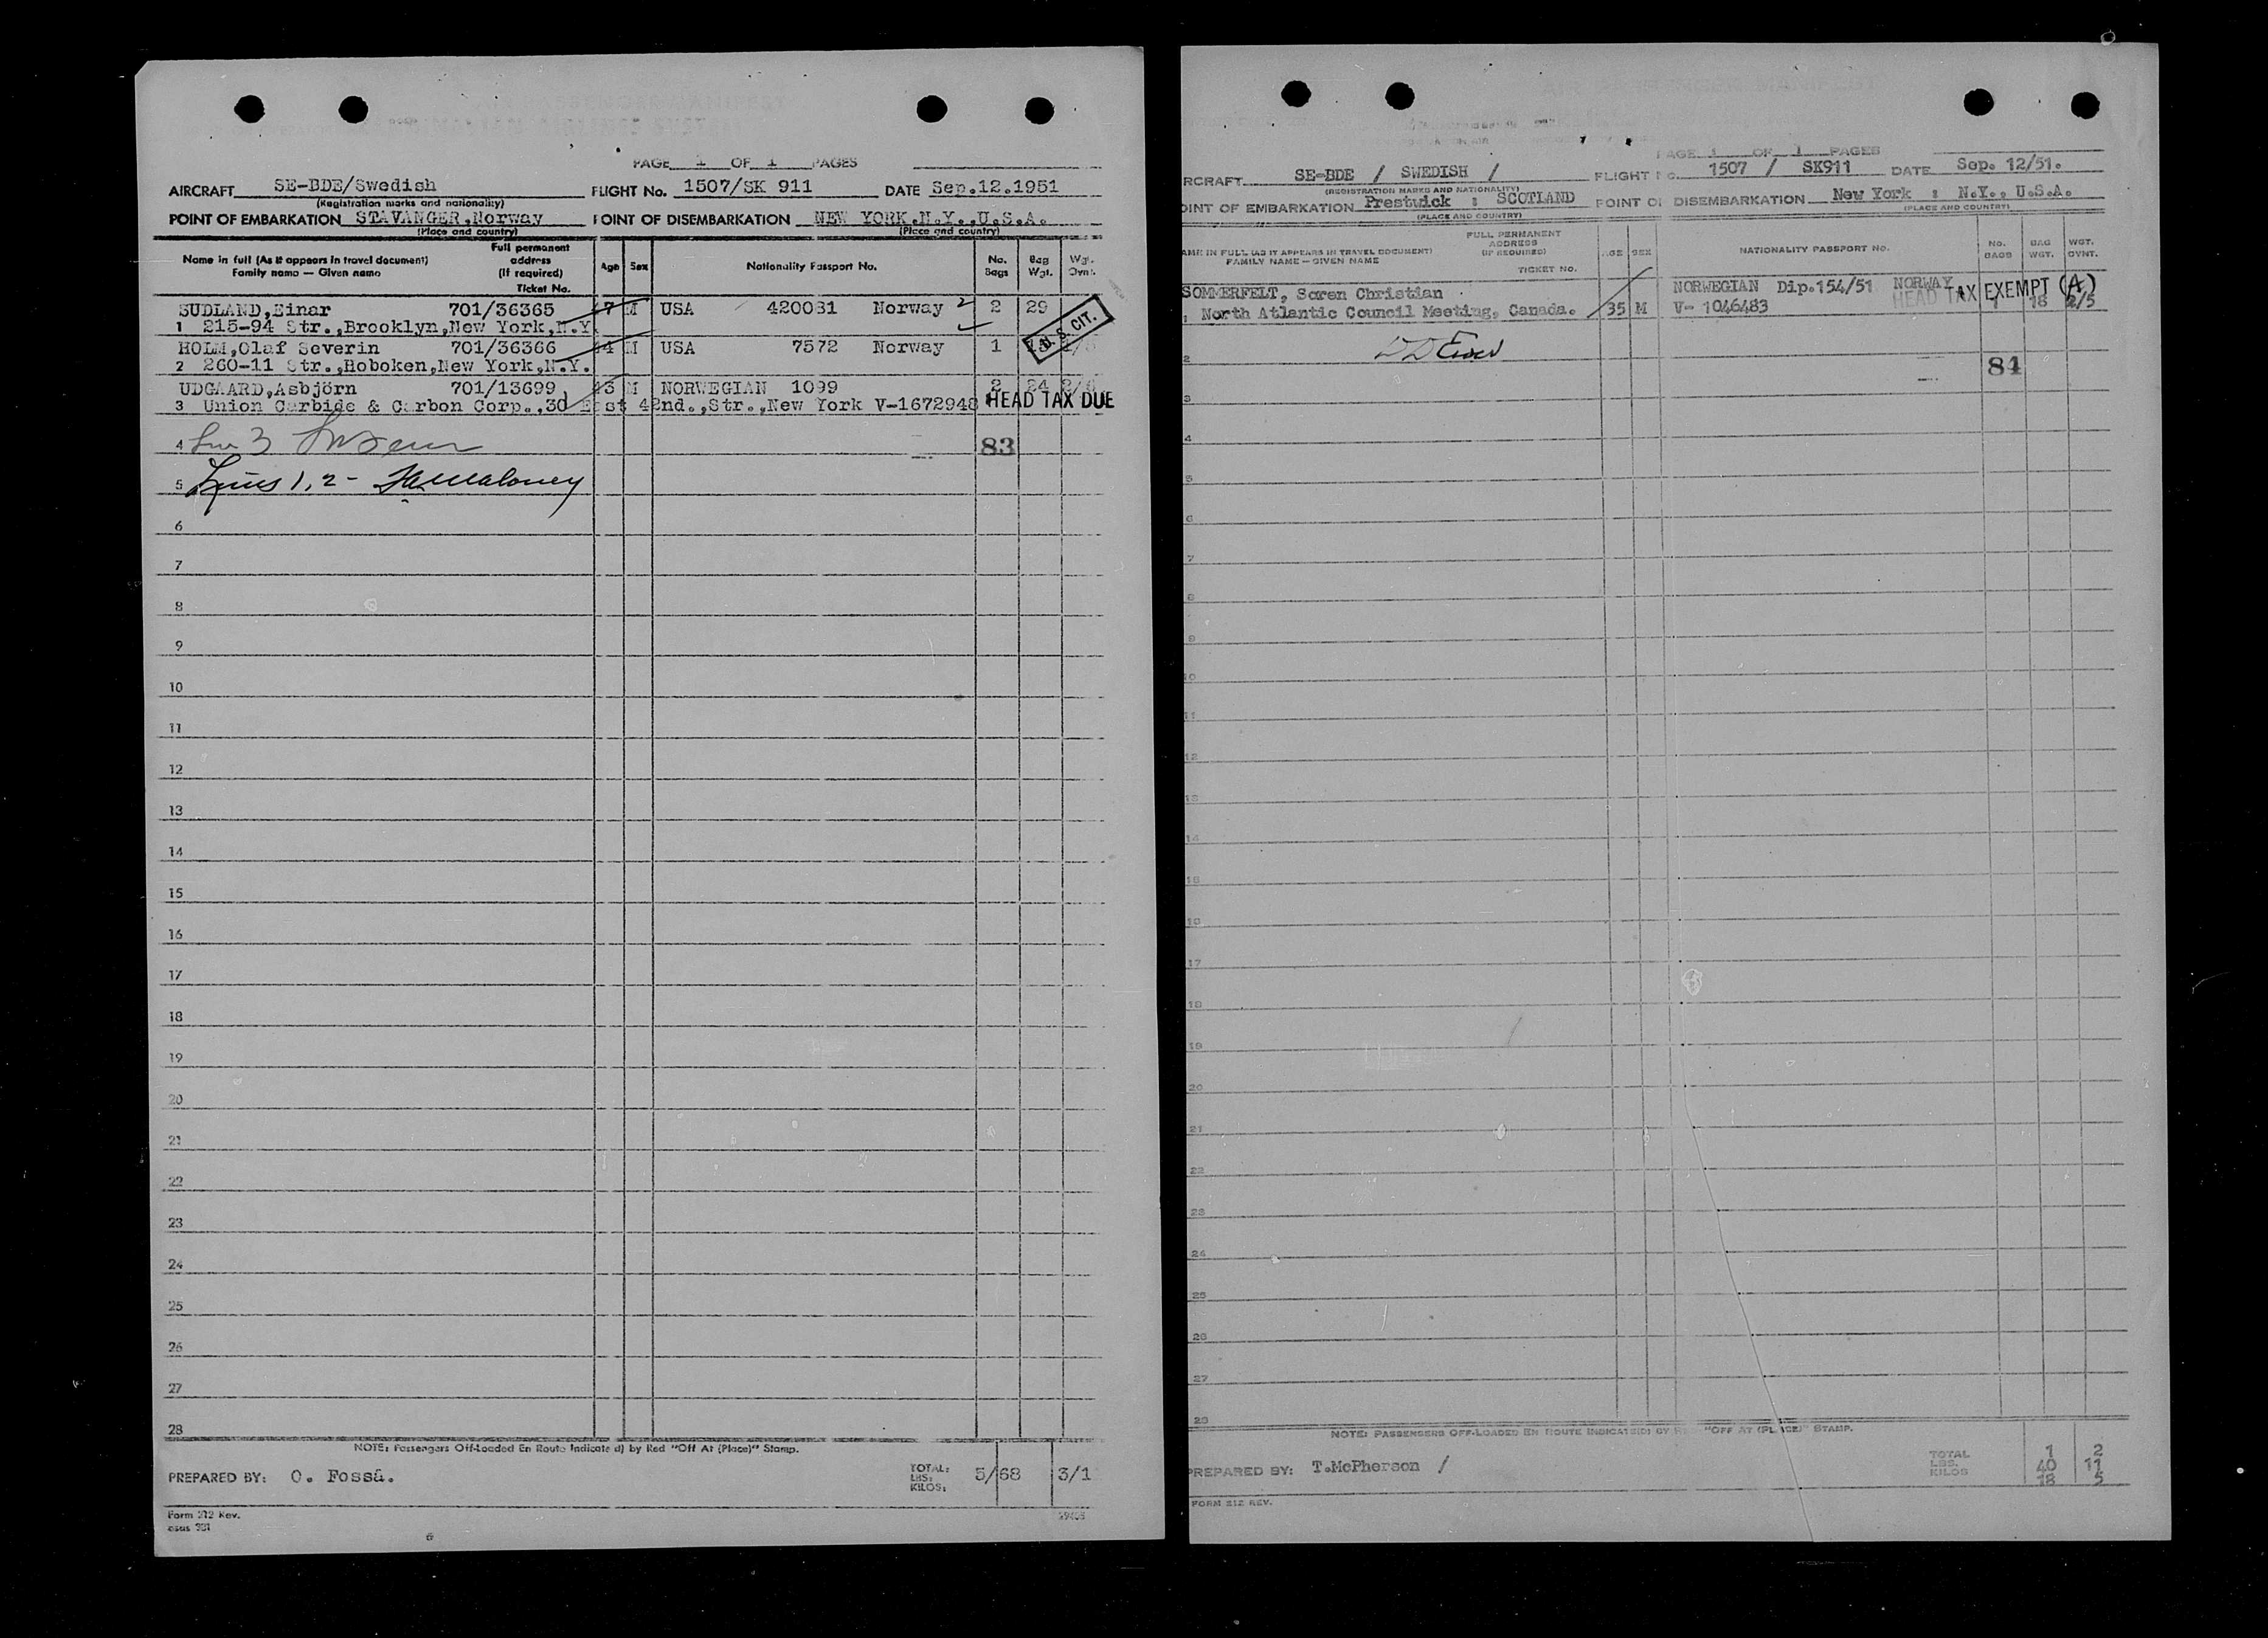 PAGE 1 OF 1 PAGES
AIRCRAFT SE-BDE/Swedish FLIGHT No. 1507/SK 911 DATE Sep.12.1951
(Registration marks and nationality)
POINT OF EMBARKATION STAVANGER.Norway POINT OF DISEMBARKATION NEW YORK.N.Y.,U.S.A.
(Place and country) (Place and country)
Name in full (As it appears in travel document) Family name — Given name Full permanent address (If required) Ticket No. Age Sex Nationality Passport No. No. Bags Bag Wgt. Wgt. Ovnt.
SUDLAND,Einar 701/36365 M USA 420081 Norway 2 2 29
1 215-94 Str.,Brooklyn,New York,N.Y.
U.S. CIT.
HOLM,Olaf Severin 701/36366 M USA 7572 Norway 1
2 260-11 Str.,Hoboken,New York,N.Y.
UDGAARD,Asbjörn 701/13699 M NORWEGIAN 1099 2 24
3 Union Carbide & Carbon Corp.,30 East 42nd.,Str.,New York V-1672948 HEAD TAX DUE
4 83
5 Lines 1, 2 - Maloney
6
7
8
9
10
11
12
13
14
15
16
17
18
19
20
21
22
23
24
25
26
27
28
NOTE: Passengers Off-Loaded En Route Indicated) by Red "Off At (Place)" Stamp.
PREPARED BY: O. Fosså. TOTAL: LBS: KILOS: 5/68 3/1
Form 212 Rev.
PAGE 1 OF 1 PAGES
RCRAFT SE-BDE / SWEDISH / FLIGHT No. 1507 / SK911 DATE Sep. 12/51.
(REGISTRATION MARKS AND NATIONALITY)
OINT OF EMBARKATION Prestwick : SCOTLAND POINT OF DISEMBARKATION New York : N.Y., U.S.A.
(PLACE AND COUNTRY) (PLACE AND COUNTRY)
AME IN FULL (AS IT APPEARS IN TRAVEL DOCUMENT) FAMILY NAME — GIVEN NAME FULL PERMANENT ADDRESS (IF REQUIRED) TICKET NO. AGE SEX NATIONALITY PASSPORT NO. NO. BAGS BAG WGT. WGT. OVNT.
SOMMERFELT, Soren Christian NORWEGIAN Dip.154/51 NORWAY
HEAD TAX EXEMPT (A)
1 North Atlantic Council Meeting, Canada. 35 M V- 1046483 1 18 2/5
2 84
3
4
5
6
7
8
9
10
11
12
13
14
15
16
17
18
19
20
21
22
23
24
25
26
27
28
NOTE: PASSENGERS OFF-LOADED EN ROUTE INDICATED) BY "OFF AT (PLACE)" STAMP.
TOTAL 1 2
PREPARED BY: T.McPherson / LBS. 40 11
KILOS 18 5
FORM 212 REV.